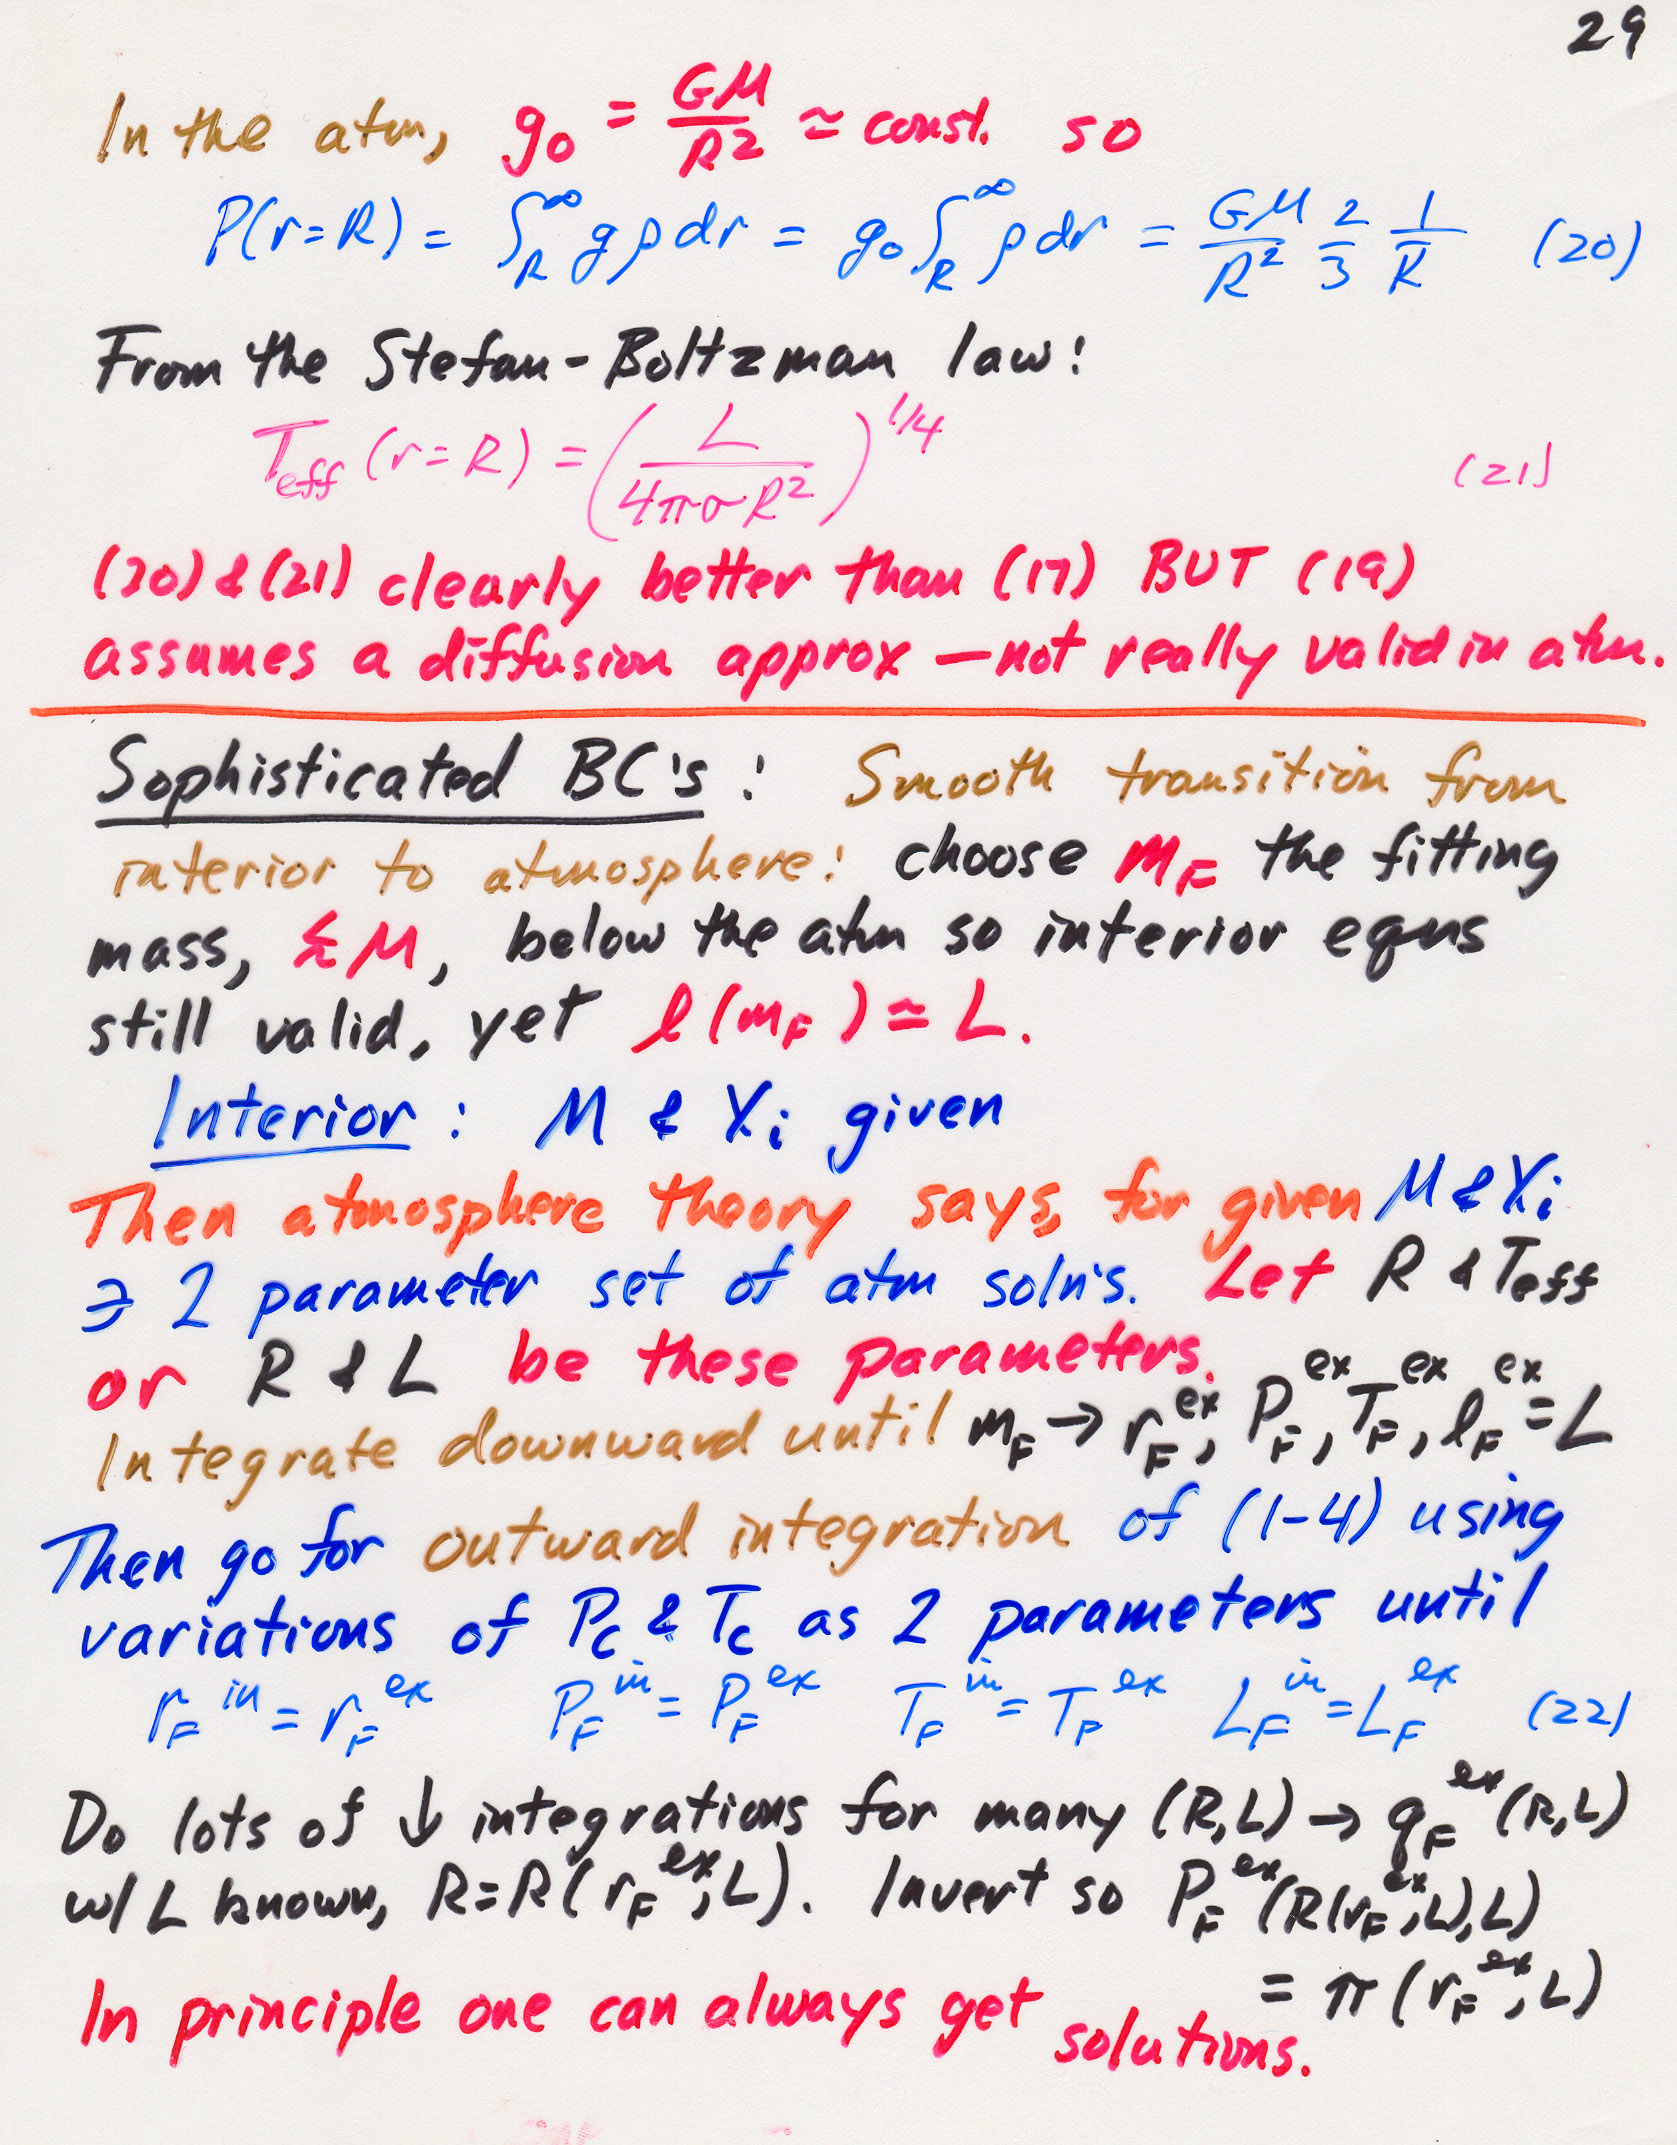 29
In the atm, g₀ = GM/R² ≃ const. so
P(r=R) = ∫_R^∞ gρdr = g₀∫_R^∞ ρdr = GM/R² 2/3 1/K (20)
From the Stefan-Boltzman law:
T_eff (r=R) = (L/4πσR²)^1/4 (21)
(20) & (21) clearly better than (17) BUT (19)
assumes a diffusion approx — not really valid in atm.
Sophisticated BC's: Smooth transition from
interior to atmosphere: choose m_F the fitting
mass, ≲ M, below the atm so interior eqns
still valid, yet l(m_F) ≃ L.
Interior: M & X_i given
Then atmosphere theory says, for given M & X_i
∃ 2 parameter set of atm soln's. Let R & T_eff
or R & L be these parameters.
Integrate downward until m_F → r_F^ex, P_F^ex, T_F^ex, l_F^ex = L
Then go for outward integration of (1-4) using
variations of P_c & T_c as 2 parameters until
r_F^in = r_F^ex P_F^in = P_F^ex T_F^in = T_F^ex L_F^in = L_F^ex (22)
Do lots of ↓ integrations for many (R,L) → q_F^ex (R,L)
w/ L known, R=R(r_F^ex, L). Invert so P_F^ex (R(r_F^ex, L), L)
= π (r_F^ex, L)
In principle one can always get solutions.